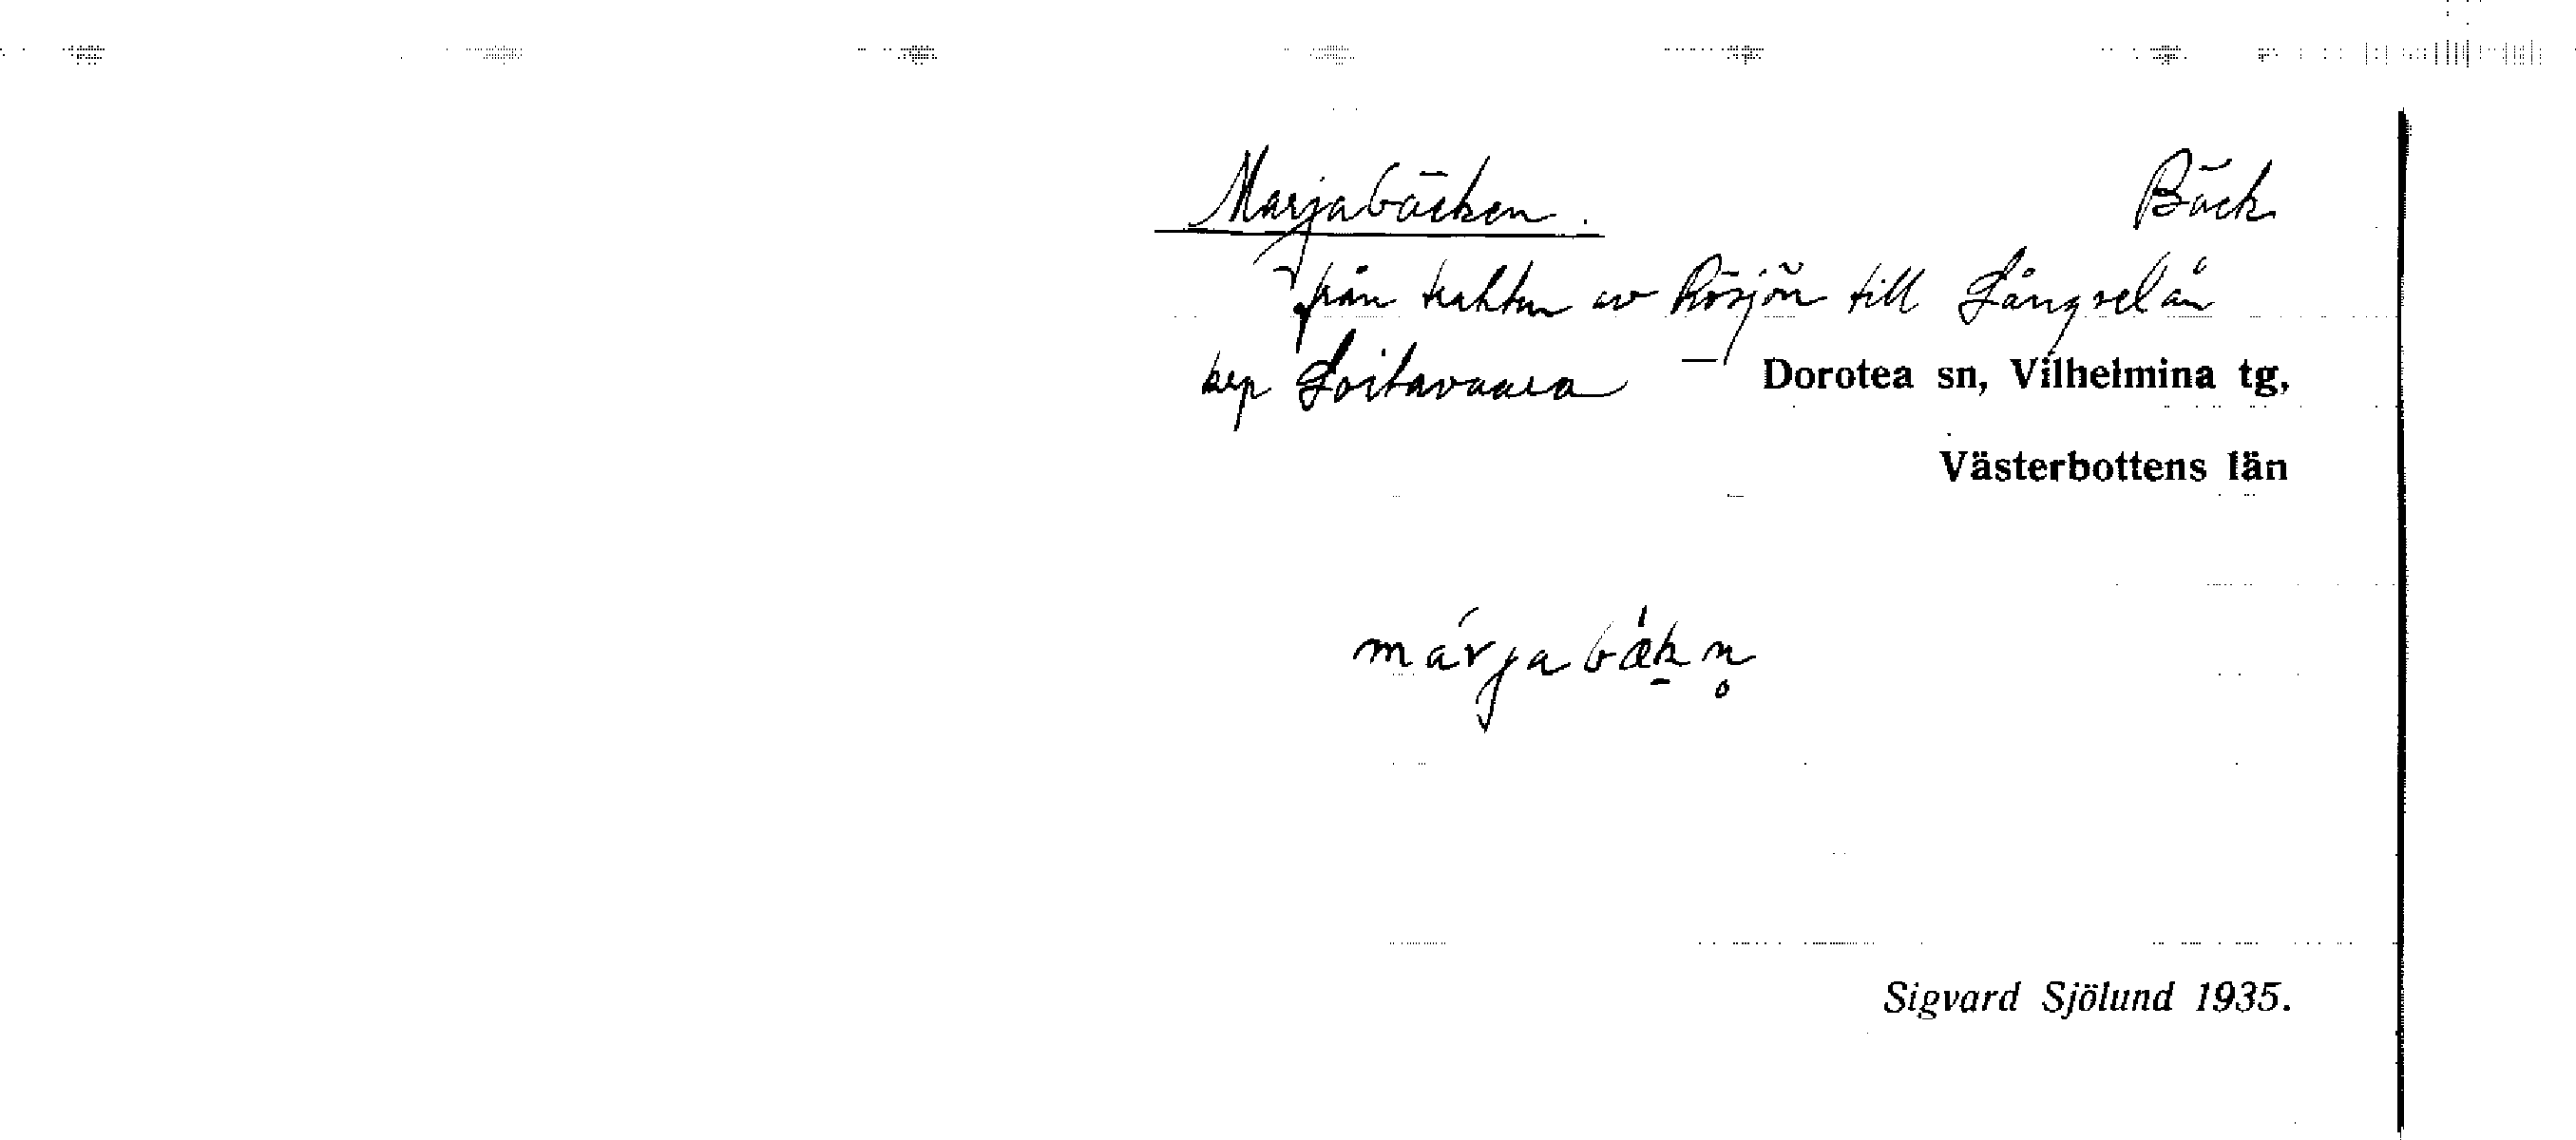 Marjabäcken. Bäck
från trakten av Rösjön till Långselån
Loitavaara Dorotea sn, Vilhelmina tg,
Västerbottens län
márjabäkn̥
Sigvard Sjölund 1935.